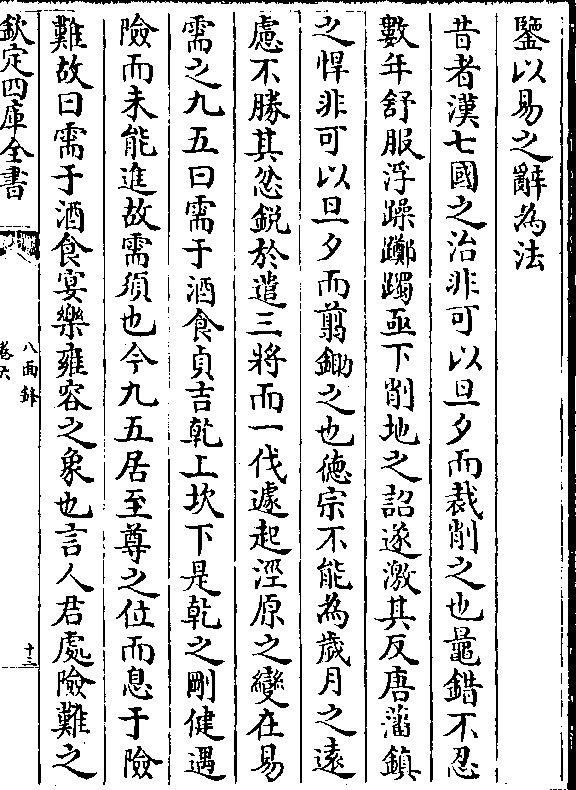 鑒以易之辭為法
昔者漢七國之治非可以旦夕而裁削之也鼂錯不忍
數年舒服浮躁躑躅亟下削地之詔遂激其反唐藩鎮
之悍非可以旦夕而翦鋤之也徳宗不能為歲月之遠
慮不勝其忿鋭於遣三將而一伐遽起涇原之變在易
需之九五曰需于酒食貞吉乾上坎下是乾之剛健遇
險而未能進故需須也今九五居至尊之位而息于險
難故曰需于酒食宴樂雍容之象也言人君處險難之
欽定四庫全書
八面鋒
卷六
十三